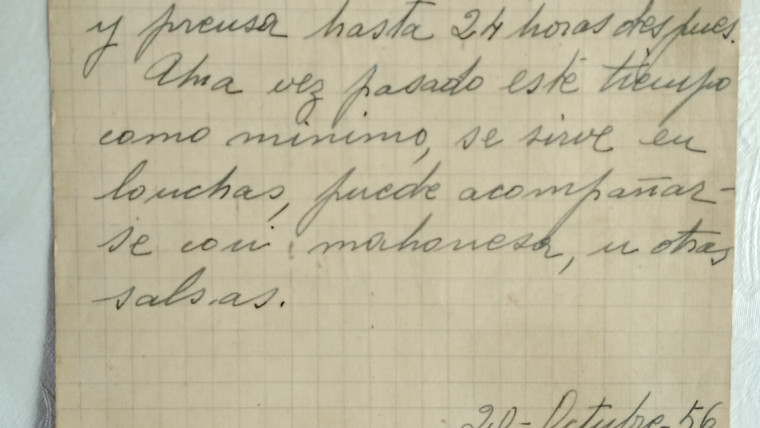 y prensa hasta 24 horas despues.
Una vez pasado esté tiempo
como minimo, se sirve en
lonchas, puede acompañar-
se con mahonesa, u otras
salsas.
20-Octubre-56